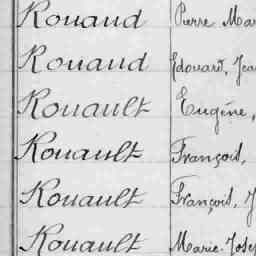 Rouaud Pierre Mar
Rouaud Edouard, Jea
Rouault Eugène,
Rouault François,
Rouault François, J
Rouault Marie-Josep